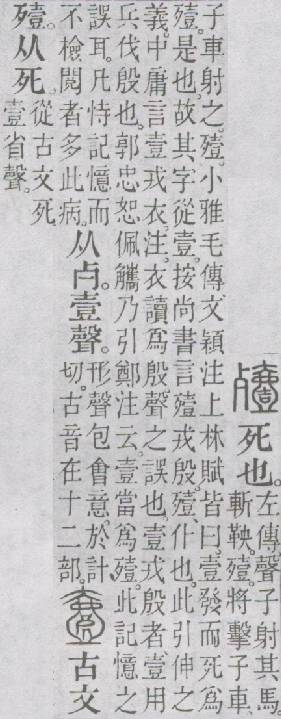 死也。左傳聲子射其馬。
斬鞅。殪。將擊子車。
子車射之。殪。小雅毛傳、文穎注上林賦皆曰。壹發而死爲
殪。是也。故其字從壹。按尚書言殪戎殷。殪、仆也。此引伸之
義。中庸言壹戎衣。注、衣讀爲殷。聲之誤也。壹戎殷者、壹用
兵伐殷也。郭忠恕佩觿乃引鄭注云。壹當爲殪。此記憶之
誤耳。凡恃記憶而
不檢閱者多此病。
从𣦵。壹聲。
形聲包會意。於計
切。古音在十二部。
古文
殪。从死。
從古文死。
壹省聲。